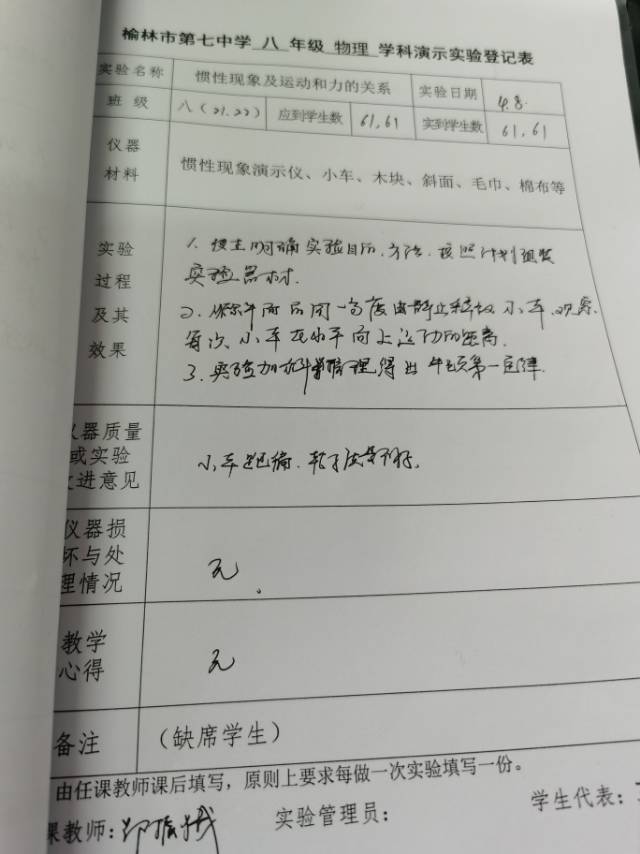 榆林市第七中学 八 年级 物理 学科演示实验登记表
实验名称 惯性现象及运动和力的关系 实验日期 4.8.
班级 八（21.22） 应到学生数 61,61 实到学生数 61,61
仪器
材料 惯性现象演示仪、小车、木块、斜面、毛巾、棉布等
实验
过程
及其
效果
1. 使生明确实验目的、方法，按照计划组装
实验器材.
2. 同一高度由静止释放小车,观察
每次小车在水平面上运动的距离.
3. 实验加科学推理得出牛顿第一定律.
仪器质量
或实验
改进意见
小车 轮子
仪器损
坏与处
理情况
无。
教学
心得
无
备注 （缺席学生）
由任课教师课后填写，原则上要求每做一次实验填写一份。
课教师: 实验管理员: 学生代表: